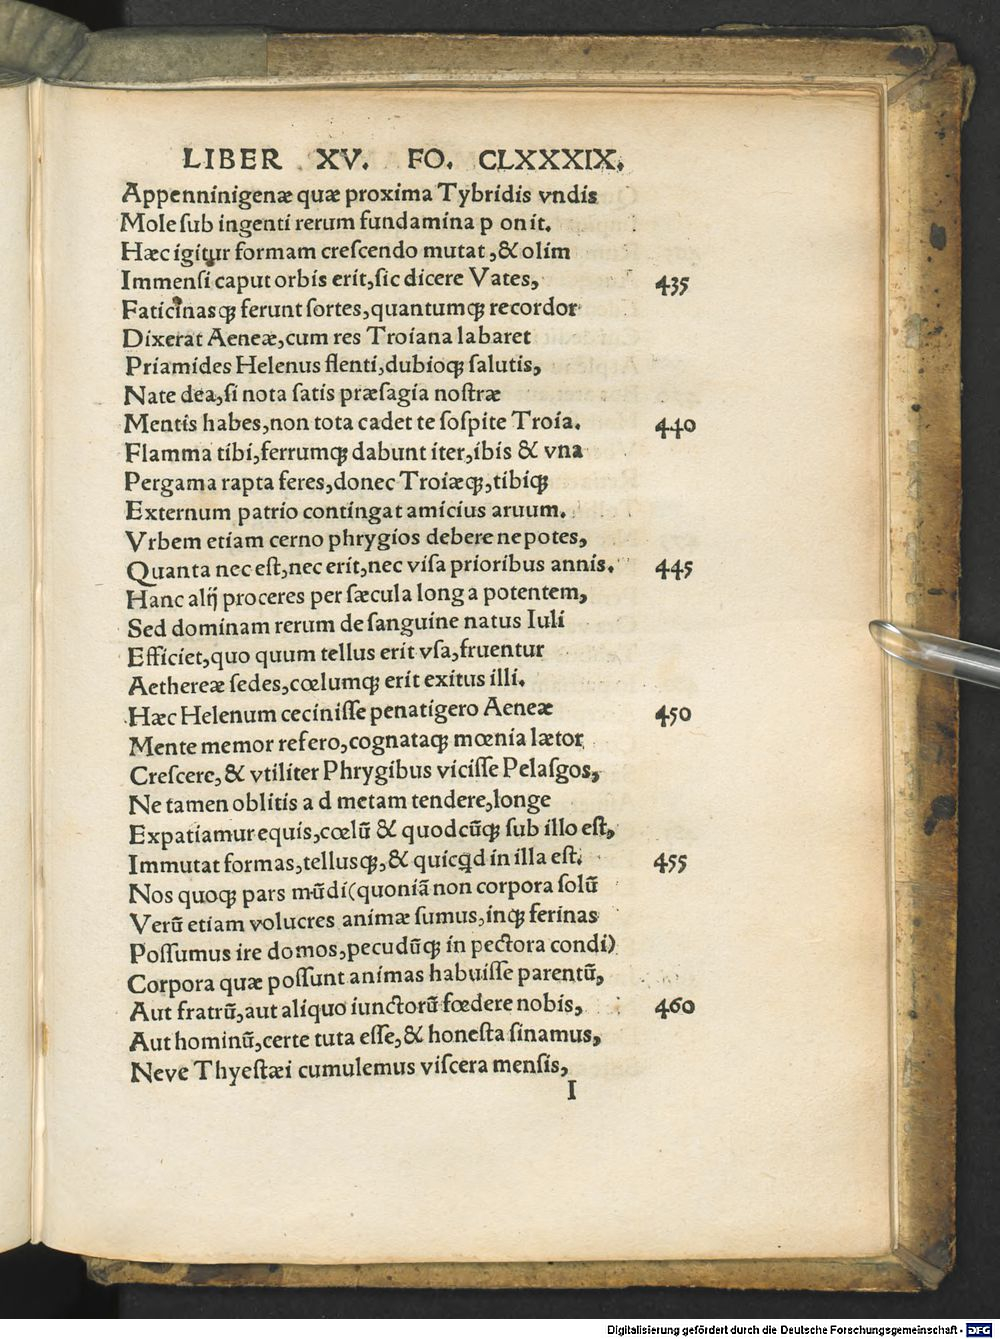 LIBER XV. FO. CLXXXIX.
Appenninigenæ quæ proxima Tybridis vndis
Mole ſub ingenti rerum fundamina p onit.
Hæc igitur formam creſcendo mutat ,& olim
Immenſi caput orbis erit,ſic dicere Vates, 435
Faticinasq; ferunt ſortes,quantumq; recordor
Dixerat Aeneæ,cum res Troiana labaret
Priamides Helenus flenti,dubioq; ſalutis,
Nate dea,ſi nota ſatis præſagia noſtræ
Mentis habes,non tota cadet te ſoſpite Troia. 440
Flamma tibi,ferrumq; dabunt iter,ibis & vna
Pergama rapta feres,donec Troiæq;,tibiq;
Externum patrio contingat amicius aruum.
Vrbem etiam cerno phrygios debere nepotes,
Quanta nec eſt,nec erit,nec viſa prioribus annis. 445
Hanc alij proceres per ſæcula long a potentem,
Sed dominam rerum de ſanguine natus Iuli
Efficiet,quo quum tellus erit vſa,fruentur
Aethereæ ſedes,cœlumq; erit exitus illi.
Hæc Helenum ceciniſſe penatigero Aeneæ 450
Mente memor refero,cognataq; mœnia lætor
Creſcere,& vtiliter Phrygibus viciſſe Pelaſgos,
Ne tamen oblitis a d metam tendere,longe
Expatiamur equis,cœlū & quodcūq; ſub illo eſt,
Immutat formas,tellusq;,& quicꝗd in illa eſt. 455
Nos quoq; pars mūdi(quoniā non corpora ſolū
Verū etiam volucres animæ ſumus,inq; ferinas
Poſſumus ire domos,pecudūq; in pectora condi)
Corpora quæ poſſunt animas habuiſſe parentū,
Aut fratrū,aut aliquo iunctorū fœdere nobis, 460
Aut hominū,certe tuta eſſe,& honeſta ſinamus,
Neve Thyeſtæi cumulemus viſcera menſis,
I
Digitalisierung gefördert durch die Deutsche Forschungsgemeinschaft - DFG